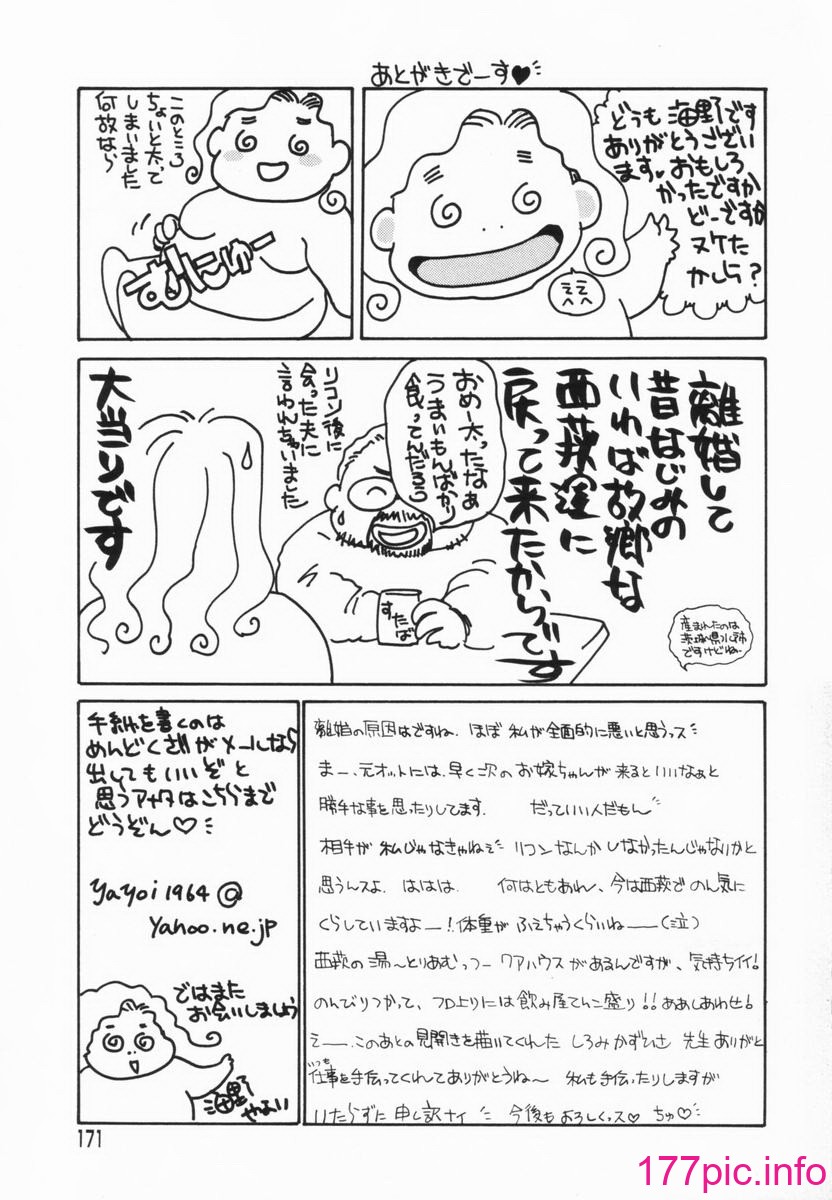 あとがきでーす♥
どうも海野です
ありがとうござい
ます♥おもしろ
かったですか
どーですか
ヌケた
かしら?
ええ
このところ
ちょいと太って
しまいました
何故なら
むにゅー
離婚して
昔なじみの
いわば故郷な
西荻窪に
戻って来たからです
産まれたのは
茨城県水戸市
ですけどね。
おめー太ったなぁ
うまいもんばかり
食ってんだろう
すたば
リコン後に
会った夫に
言われちゃいました
大当りです
手紙を書くのは
めんどくさいがメールなら
出してもいいぞと
思うアナタはこちらまで
どうぞん♡
yayoi1964@
yahoo.ne.jp
ではまた
お会いしましょう
海野
やよい
離婚の原因はですね、ほぼ私が全面的に悪いと思うっス
まー、元オットには、早く次のお嫁ちゃんが来るといいなぁと
勝手な事を思ったりしてます. だっていい人だもん
相手が私じゃなきゃねぇ リコンなんかしなかったんじゃないかと
思うんスよ. ははは. 何はともあれ、今は西荻でのん気に
くらしていますよー!体重がふえちゃうくらいね——(泣)
西荻の湯〜とりあむっつークアハウスがあるんですが、気持ちイイ!
のんびりつかって、フロ上りには飲み屋てんこ盛り!!ああしあわせ!
えー—.このあとの見開きを描いてくれた しろみかずひさ 先生ありがと
いつも
仕事を手伝ってくれてありがとうね〜 私も手伝ったりしますが
いたらずに申し訳ナイ 今後もよろしくっス♡ ちゅ♡
171
177pic.info